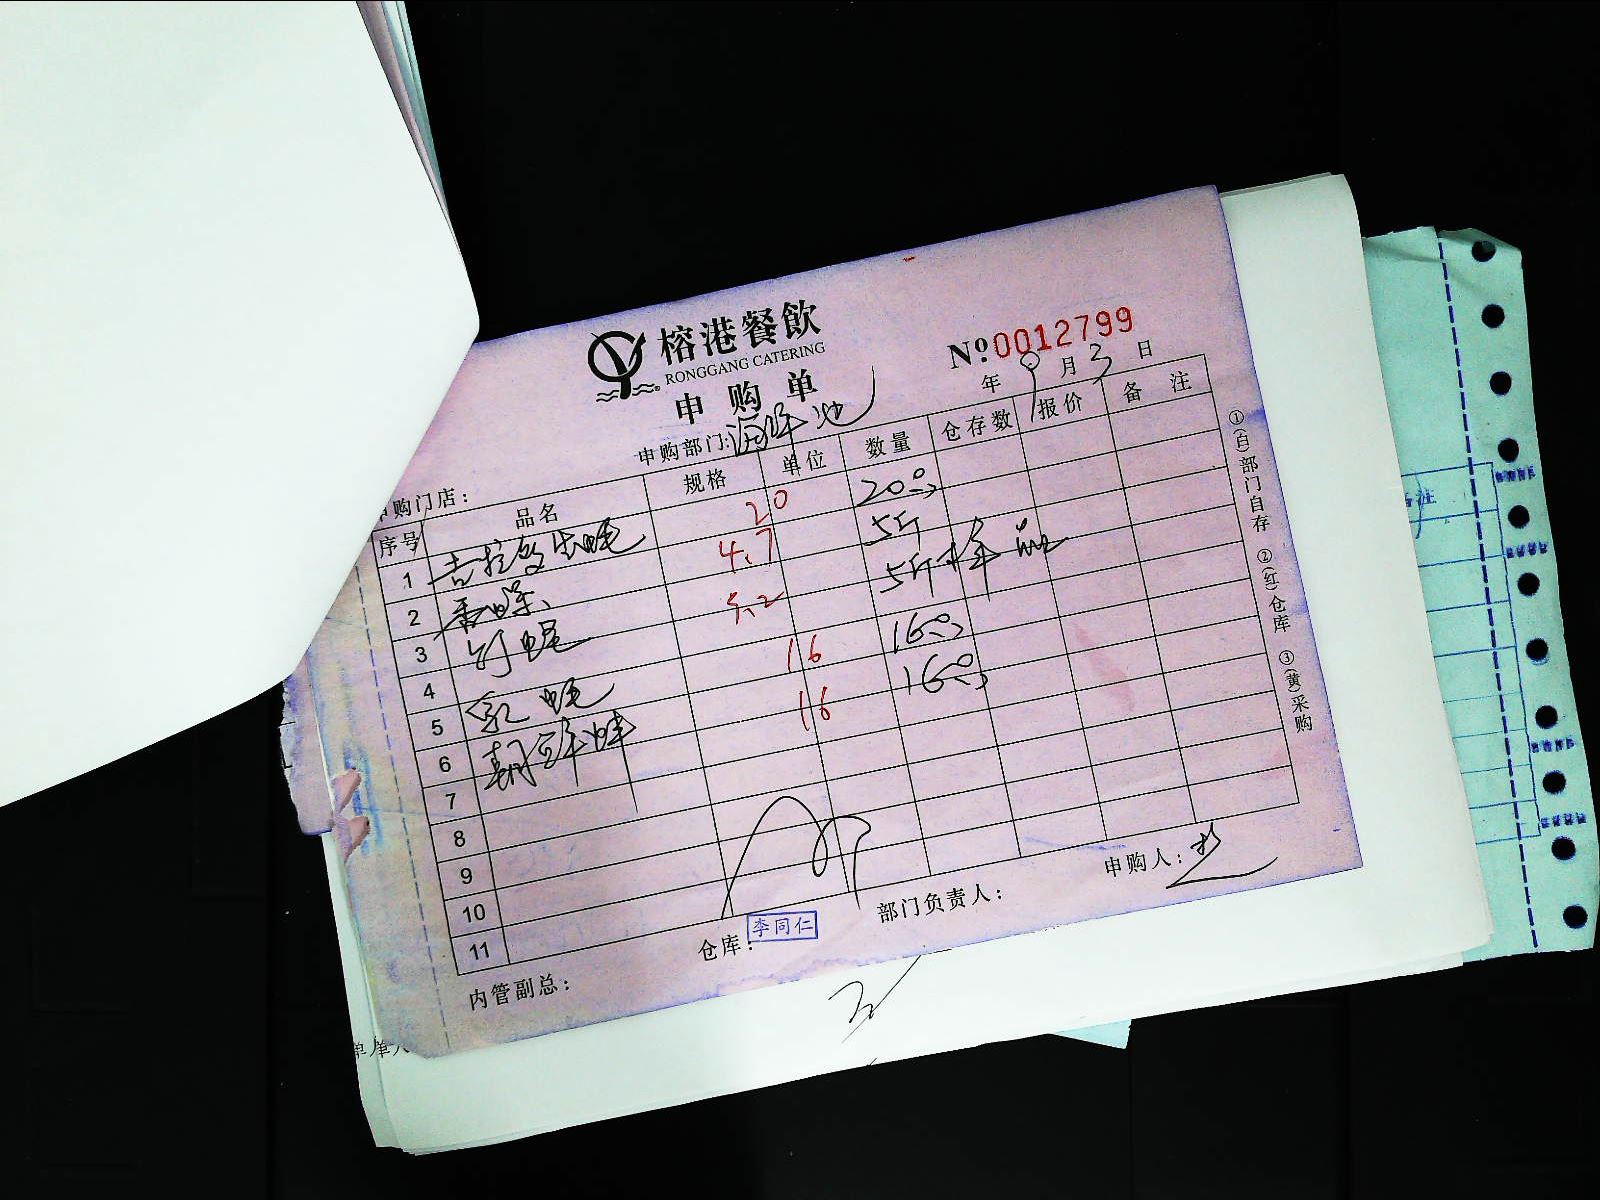 榕港餐飲
RONGGANG CATERING
申购单
№0012799
年 9月3日
申购部门:海鲜池
申购门店:
序号 品名 规格 单位 数量 仓存数 报价 备注
1 吉拉多生蚝 20 20只
2 香螺 4.7 5斤
3 5.2 5斤
4
5 16 16只
6 16 16只
7
8
9
10
11
仓库: 李同仁
部门负责人:
申购人:
内管副总:
①(白)部门自存 ②(红)仓库 ③(黄)采购